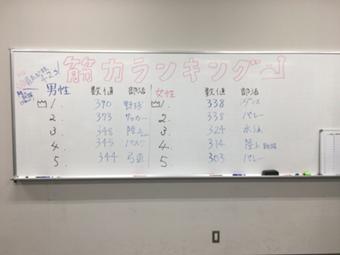 筋力ランキング
男性 数値 部活 女性 数値 部活
1. 390 野球 1. 338 ダンス
2. 373 サッカー 2. 338 バレー
3. 348 陸上 3. 324 水泳
4. 345 4. 314 陸上
5. 344 弓道 5. 303 バレー